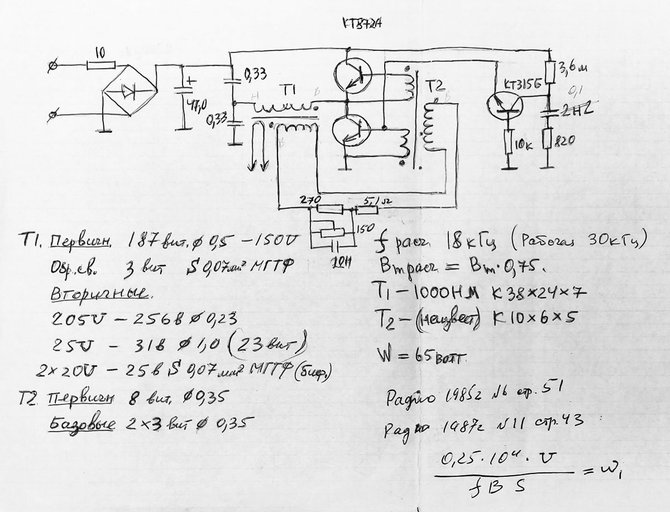 КТ872А
10
+
47,0
0,33
0,33
Т1
Т2
КТ315Б
3,6м
0,1
2Н2
820
10к
270
5,1Ω
150
10Н
Т1. Первичн. 187 вит. ⌀ 0,5 – 150V
Обр.св. 3 вит S 0,07мм² МГТФ
Вторичные.
205V – 256в ⌀ 0,23
25V – 31в ⌀ 1,0 (23 вит)
2×20V – 25в S 0,07мм² МГТФ (биф)
Т2 Первичн 8 вит, ⌀ 0,35
Базовые 2×3 вит ⌀ 0,35
f расч. 18кГц (Рабочая 30кГц)
Вm расч = Вm·0,75.
Т1 – 1000НМ К 38×24×7
Т2 – (неизвест) К 10×6×5
W = 65 ватт
Радио 1985г №6 стр. 51
Радио 1987г №11 стр. 43
0,25·10⁴· U
f B S
= w₁